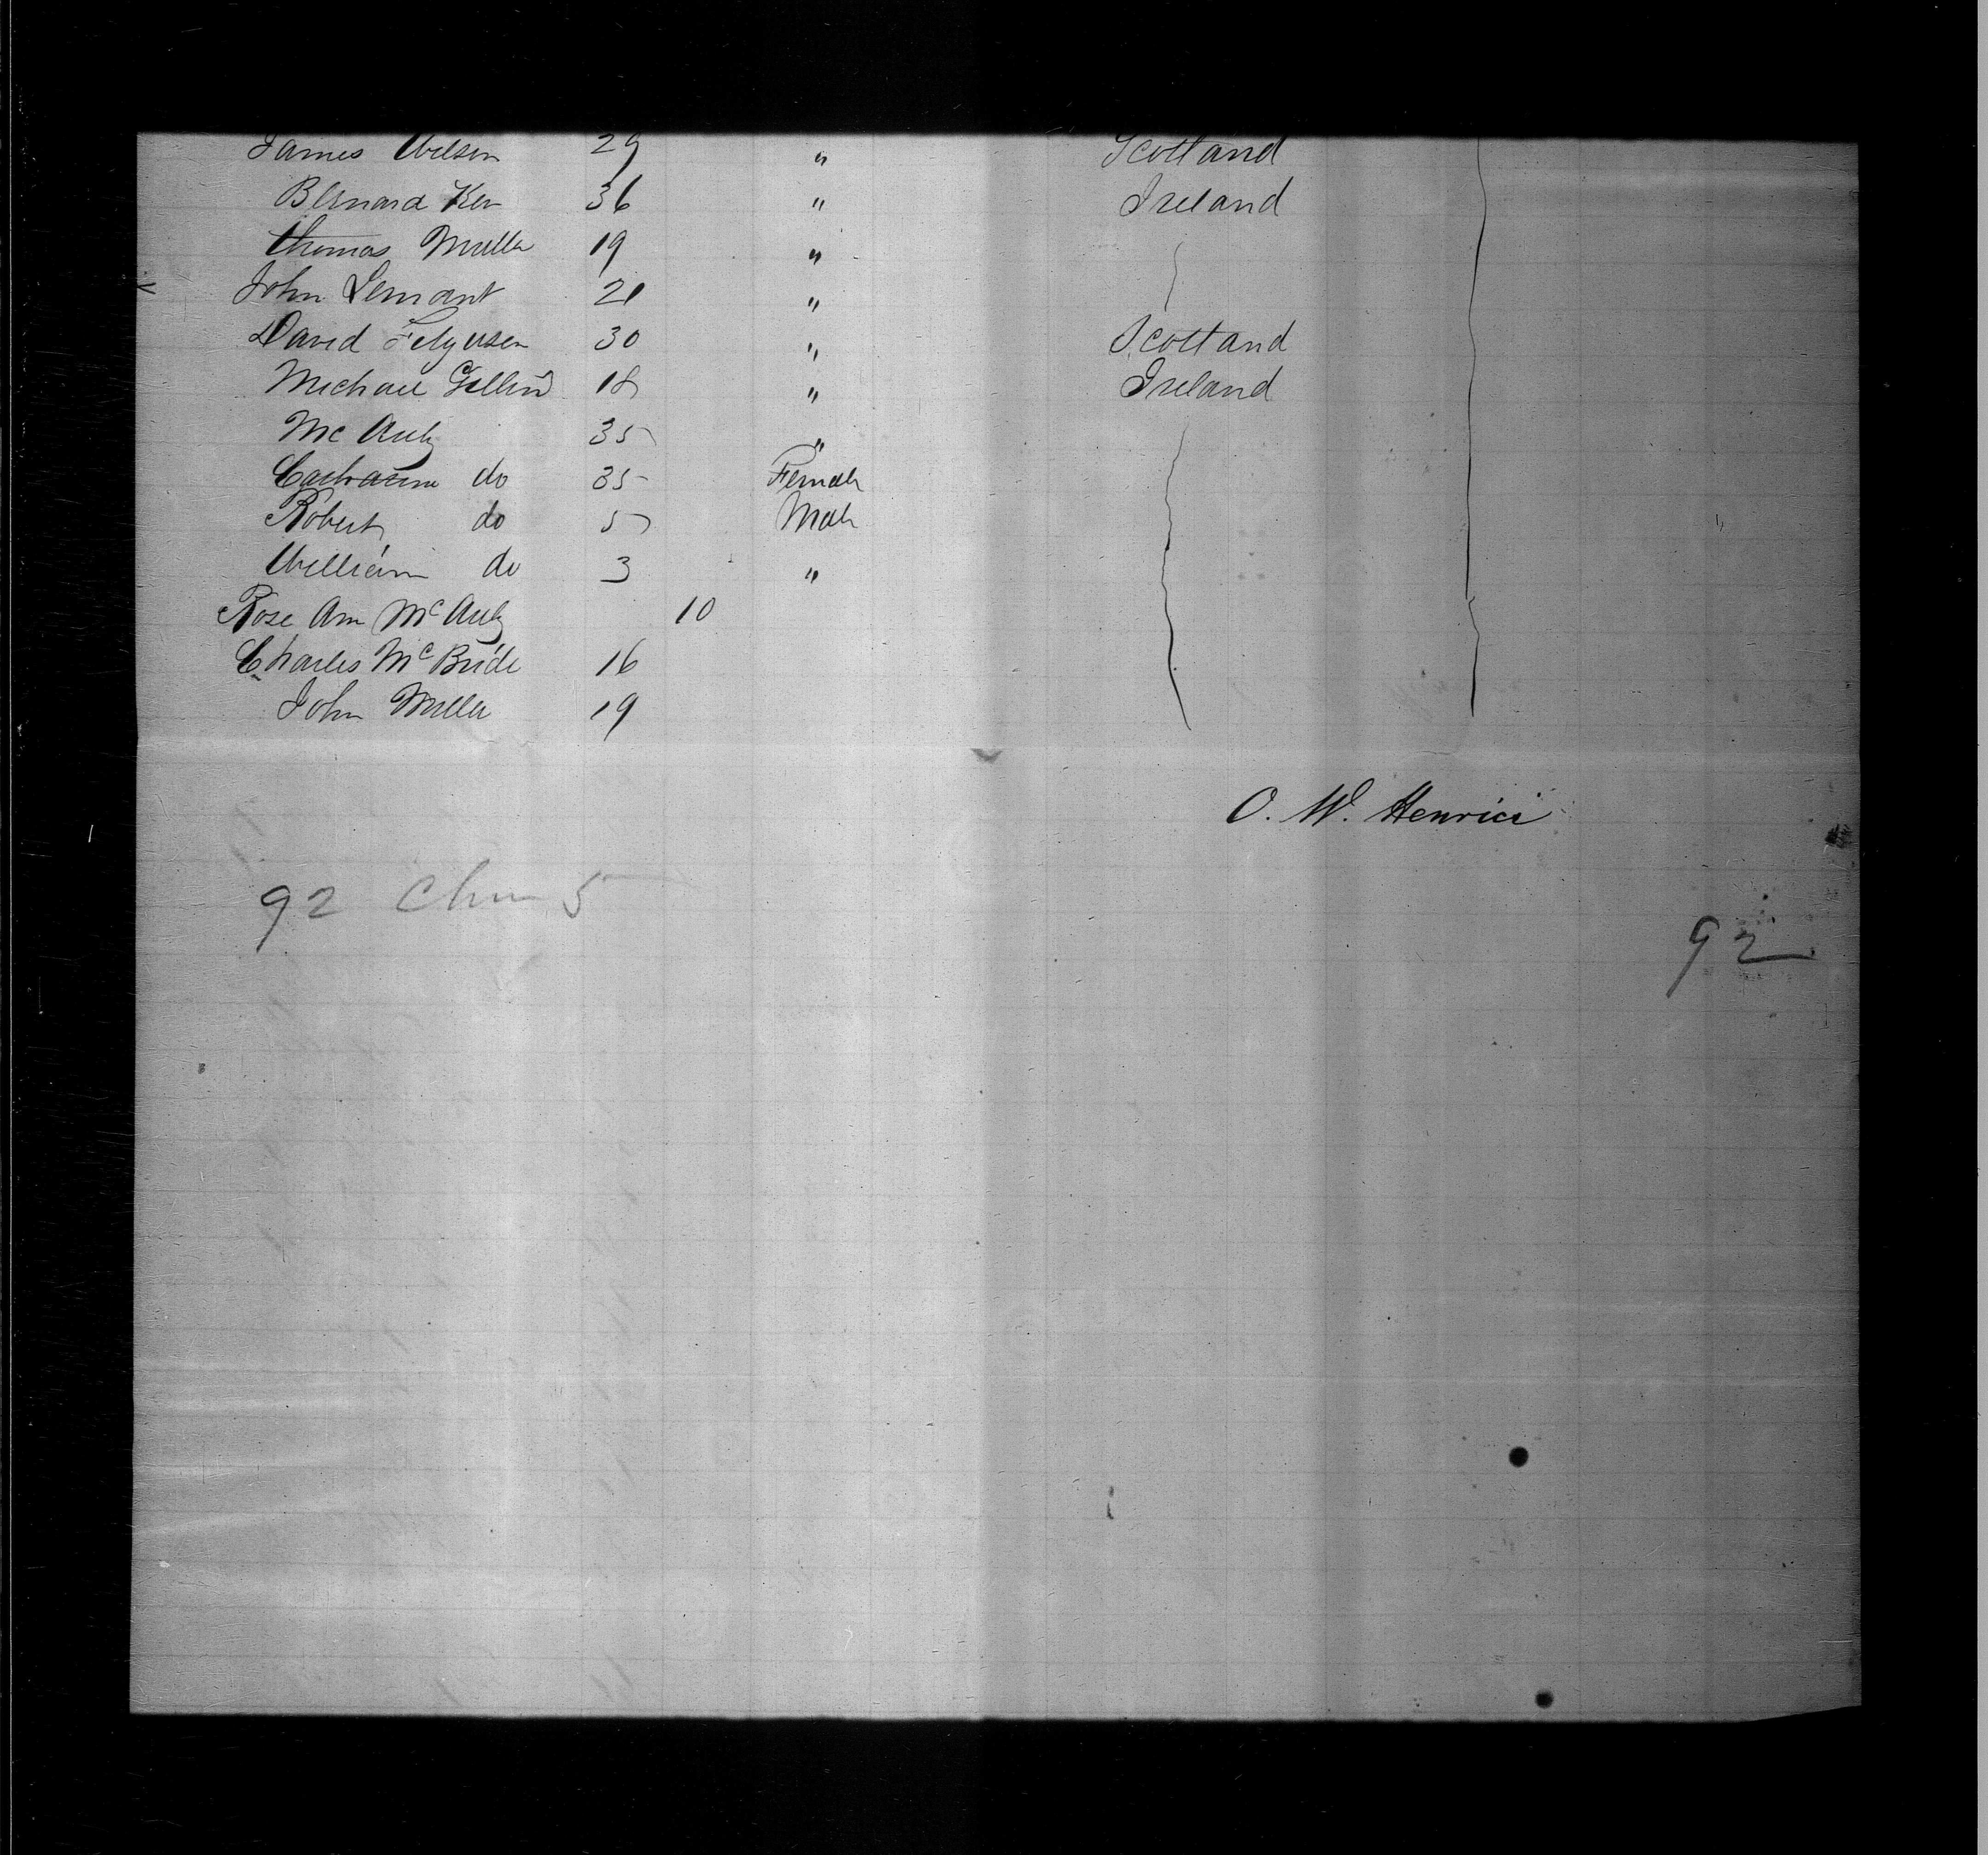 James Wilson 29 " Scotland
Bernard Ker 36 " Ireland
Thomas Miller 19 "
John 21 "
David Ferguson 30 " Scotland
Michael 18 " Ireland
Mc Auly 35 "
Catharine do 35 Female
Robert do 5 Male
William do 3 "
Rose Ann McAuly 10
Charles McBride 16
John Miller 19
O. W. Henrici
92 5
92